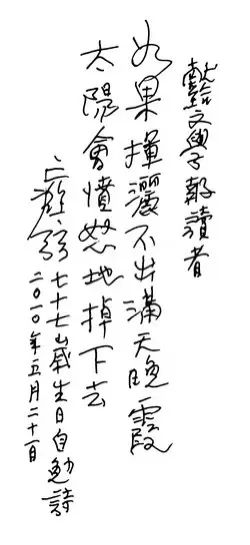 獻給文學報讀者
如果揮灑不出滿天晚霞
太陽會憤怒地掉下去
七十七歲生日自勉詩
二〇一〇年五月二十一日